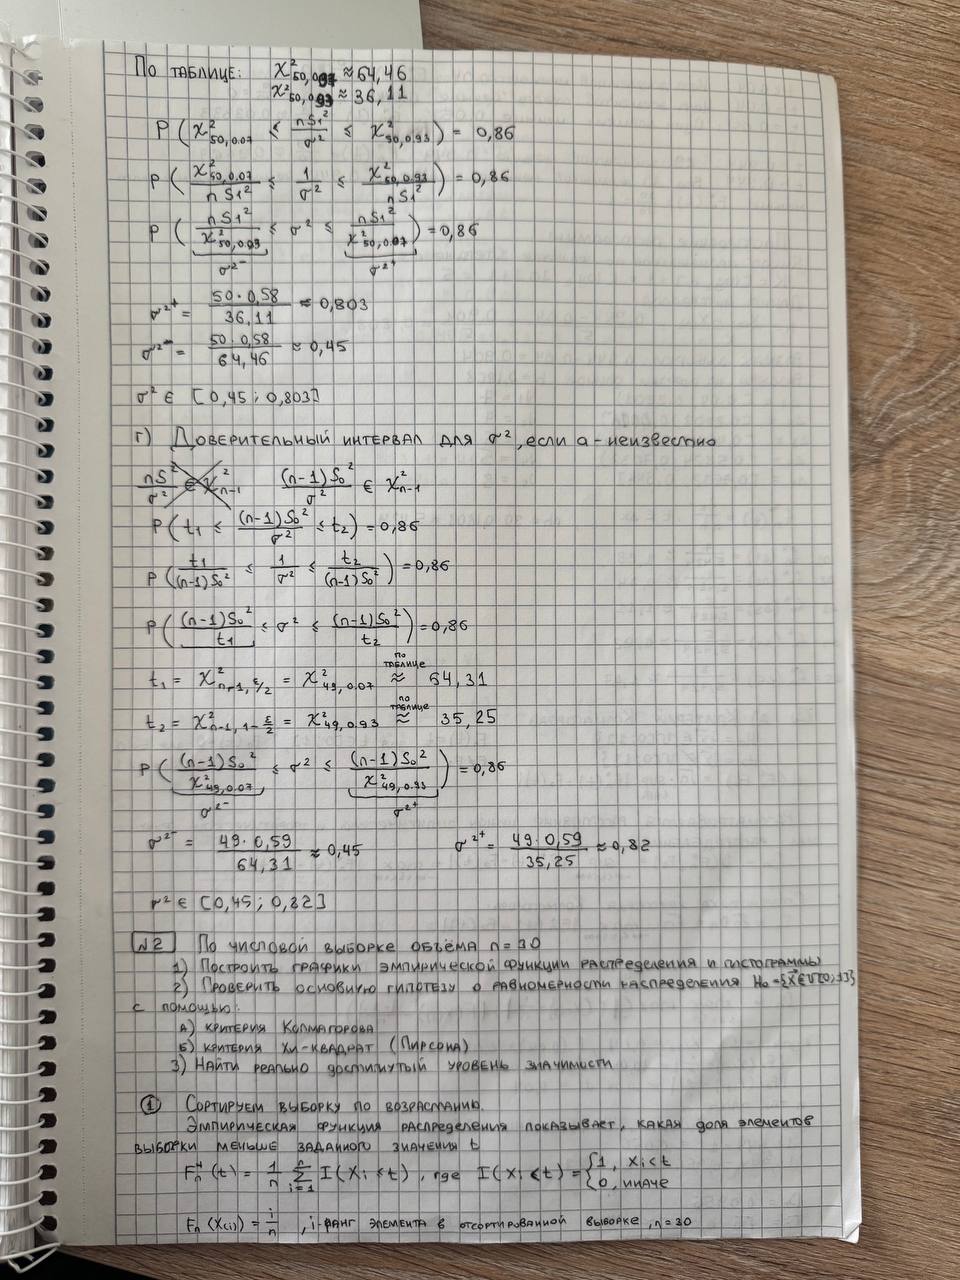 По таблице: χ²₅₀,₀.₀₇ ≈ 64,46
χ²₅₀,₀.₉₃ ≈ 36,11
P(χ²₅₀,₀.₀₇ ≤ nS₁²/σ² ≤ χ²₅₀,₀.₉₃) = 0,86
P(χ²₅₀,₀.₀₇/nS₁² ≤ 1/σ² ≤ χ²₅₀,₀.₉₃/nS₁²) = 0,86
P(nS₁²/χ²₅₀,₀.₉₃ ≤ σ² ≤ nS₁²/χ²₅₀,₀.₀₇) = 0,86
σ²⁻ σ²⁺
σ²⁺ = 50·0,58/36,11 ≈ 0,803
σ²⁻ = 50·0,58/64,46 ≈ 0,45
σ² ∈ [0,45; 0,803]
г) Доверительный интервал для σ², если a - неизвестно
(n-1)S₀²/σ² ∈ χ²ₙ₋₁
P(t₁ ≤ (n-1)S₀²/σ² ≤ t₂) = 0,86
P(t₁/(n-1)S₀² ≤ 1/σ² ≤ t₂/(n-1)S₀²) = 0,86
P((n-1)S₀²/t₁ ≤ σ² ≤ (n-1)S₀²/t₂) = 0,86
t₁ = χ²ₙ₋₁,ε/₂ = χ²₄₉,₀.₀₇ ≈ (по таблице) 64,31
t₂ = χ²ₙ₋₁,₁₋ε/₂ = χ²₄₉,₀.₉₃ ≈ (по таблице) 35,25
P((n-1)S₀²/χ²₄₉,₀.₀₇ ≤ σ² ≤ (n-1)S₀²/χ²₄₉,₀.₉₃) = 0,86
σ²⁻ σ²⁺
σ²⁻ = 49·0,59/64,31 ≈ 0,45 σ²⁺ = 49·0,59/35,25 ≈ 0,82
σ² ∈ [0,45; 0,82]
№2 По числовой выборке объёма n = 30
1) Построить графики эмпирической функции распределения и гистограммы
2) Проверить основную гипотезу о равномерности распределения H₀ = {X⃗ ∈ U[0;1]}
с помощью:
а) критерия Колмагорова
б) критерия Хи-квадрат (Пирсона)
3) Найти реально достигнутый уровень значимости
① Сортируем выборку по возрастанию.
Эмпирическая функция распределения показывает, какая доля элементов
выборки меньше заданного значения t
Fₙ*(t) = 1/n Σᵢ₌₁ⁿ I(Xᵢ < t), где I(Xᵢ < t) = {1, Xᵢ < t
0, иначе
Fₙ(X₍ᵢ₎) = i/n, i-ранг элемента в отсортированной выборке, n = 30